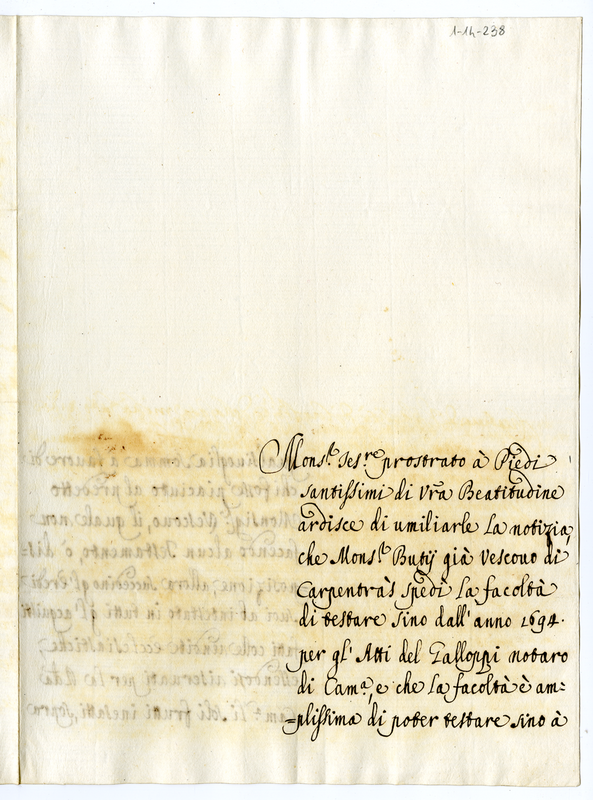 1-14-238
Mons.r Tes.re prostrato à Piedi
santissimi di Vra Beatitudine
ardisce di umiliarle la notizia,
che Mons.r Butij già Vescouo di
Carpentràs spedì la facoltà
di testare sino dall'anno 1694.
per gl'Atti del Galloppi notaro
di Cam.a, e che la facoltà è am=
=plissima di poter testare sino à